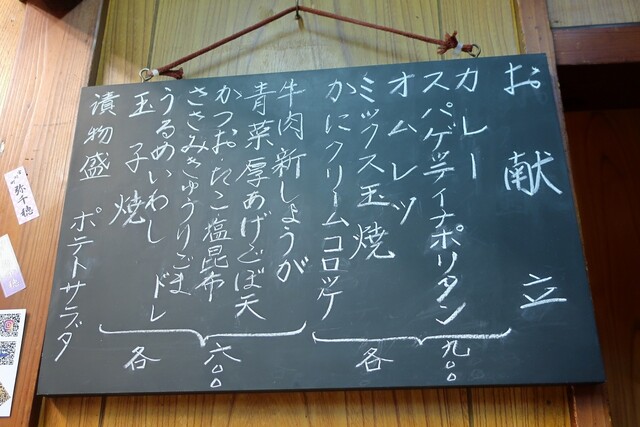 お献立
カレー
スパゲッティナポリタン
オムレツ
ミックス玉焼
かにクリームコロッケ
各九〇〇
牛肉新しょうが
青菜厚あげごぼ天
かつお・たこ塩昆布
ささみきゅうりごまドレ
うるめいわし
玉子焼
各六〇〇
漬物盛 ポテトサラダ
弥千穂